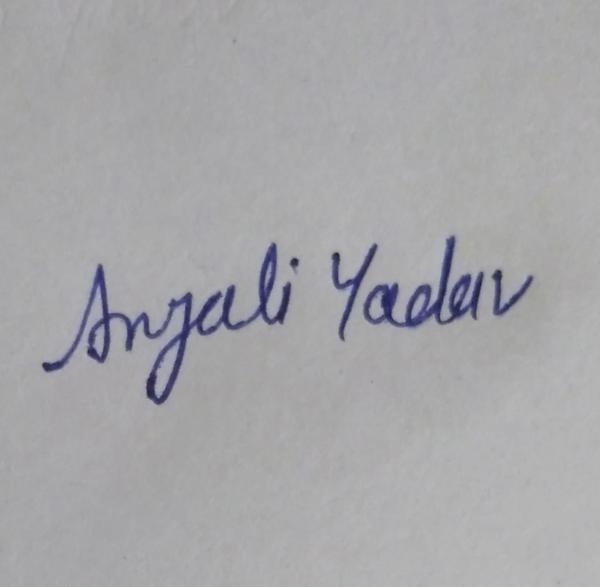 Anjali Yadav